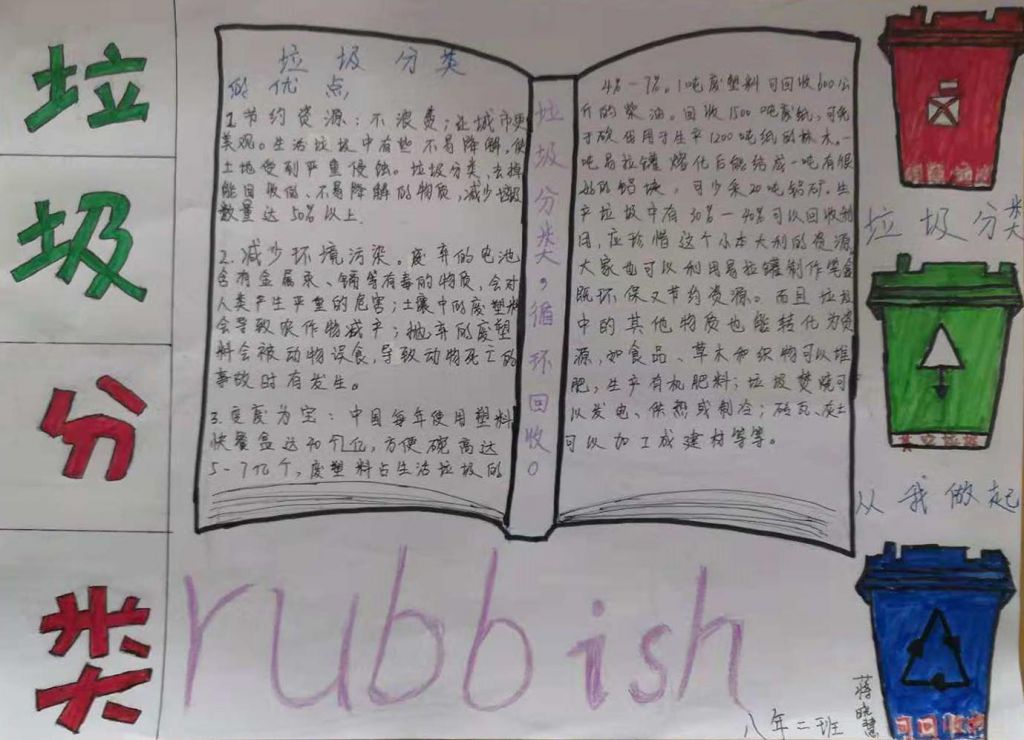 垃
圾
分
类
垃圾分类
的优点
1.节约资源：不浪费；让城市更
美观。生活垃圾中有些不易降解，使
土地受到严重侵蚀。垃圾分类，去掉
能回收的、不易降解的物质，减少垃圾
数量达50%以上.
2.减少环境污染。废弃的电池
含有金属汞、镉等有毒的物质，会对
人类产生严重的危害；土壤中的废塑料
会导致农作物减产；抛弃的废塑
料会被动物误食，导致动物死亡的
事故时有发生。
3.变废为宝：中国每年使用塑料
快餐盒达40个亿，方便碗高达
5-7亿个，废塑料占生活垃圾的
垃圾分类，循环回收。
4%－7%。1吨废塑料可回收600公
斤的柴油。回收1500吨废纸，可免
于砍伐用于生产1200吨纸的林木。一
吨易拉罐熔化后能结成一吨有很
的铝块，可少采20吨铝矿。生
产垃圾中有30%－40%可以回收利
用，应珍惜这个小本大利的资源，
大家也可以利用易拉罐制作笔盒
既环保又节约资源。而且垃圾
中的其他物质也能转化为资
源，如食品、草木和织物可以堆
肥，生产有机肥料；垃圾焚烧可
以发电、供热或制冷；砖瓦、灰土
可以加工成建材等等。
垃圾分类
从我做起
可回收
rubbish
八年二班
蒋晓慧